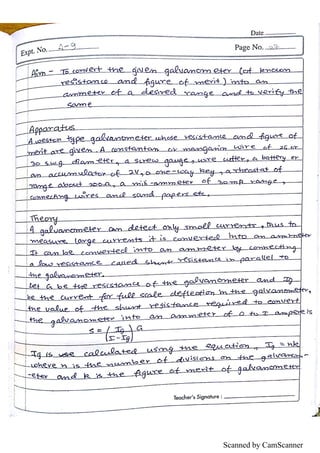 Date
Expt. No. A-9
Page No.
Aim - To convert the given galvanometer (of known
resistance and figure of merit) into an
ammeter of a desired range and to verify the
same
Apparatus
A weston type galvanometer whose resistance and figure of
merit are given. A constantan or manganin wire of 26 or
30 s.w.g. diameter, a screw gauge, wire cutter, a battery or
an accumulator of 2V, a one-way key, a rheostat of
range about 200Ω, a milli-ammeter of range,
connecting wires and sand papers etc.
Theory
A galvanometer can detect only small currents, thus to
measure large currents it is converted into an ammeter
It can be converted into an ammeter by connecting
a low resistance called shunt resistance in parallel to
the galvanometer.
Let G be the resistance of the galvanometer and Ig
be the current for full scale deflection in the galvanometer,
the value of the shunt resistance required to convert
the galvanometer into an ammeter of 0 to I ampere is
S = (Ig / (I-Ig)) G
Ig is use calculated using the equation, Ig = nk
where n is the number of divisions on the galvanom-
-eter and k is the figure of merit of galvanometer
Teacher's Signature :
Scanned by CamScanner